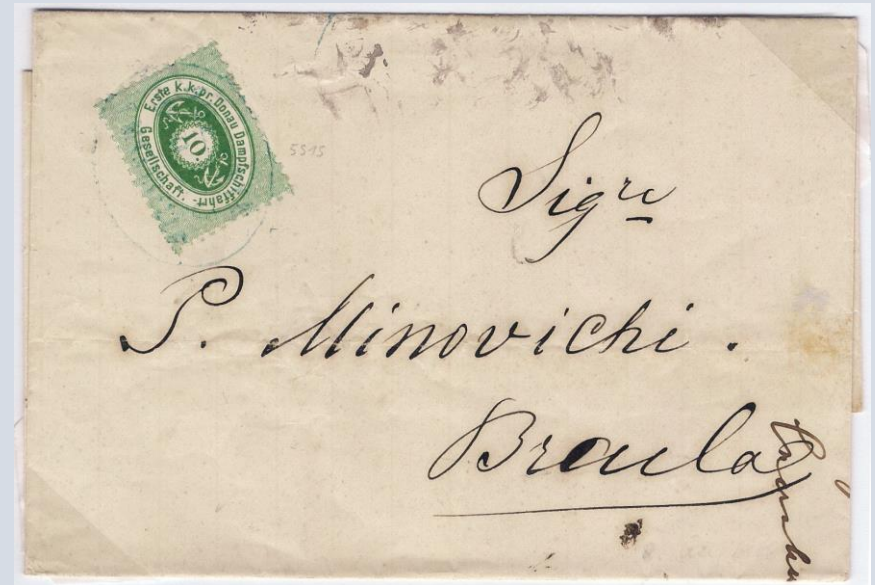 Erste k.k. pr. Donau Dampfschifffahrt-
Gesellschaft.
10
5515
Sigre
P. Minovichi.
Braula